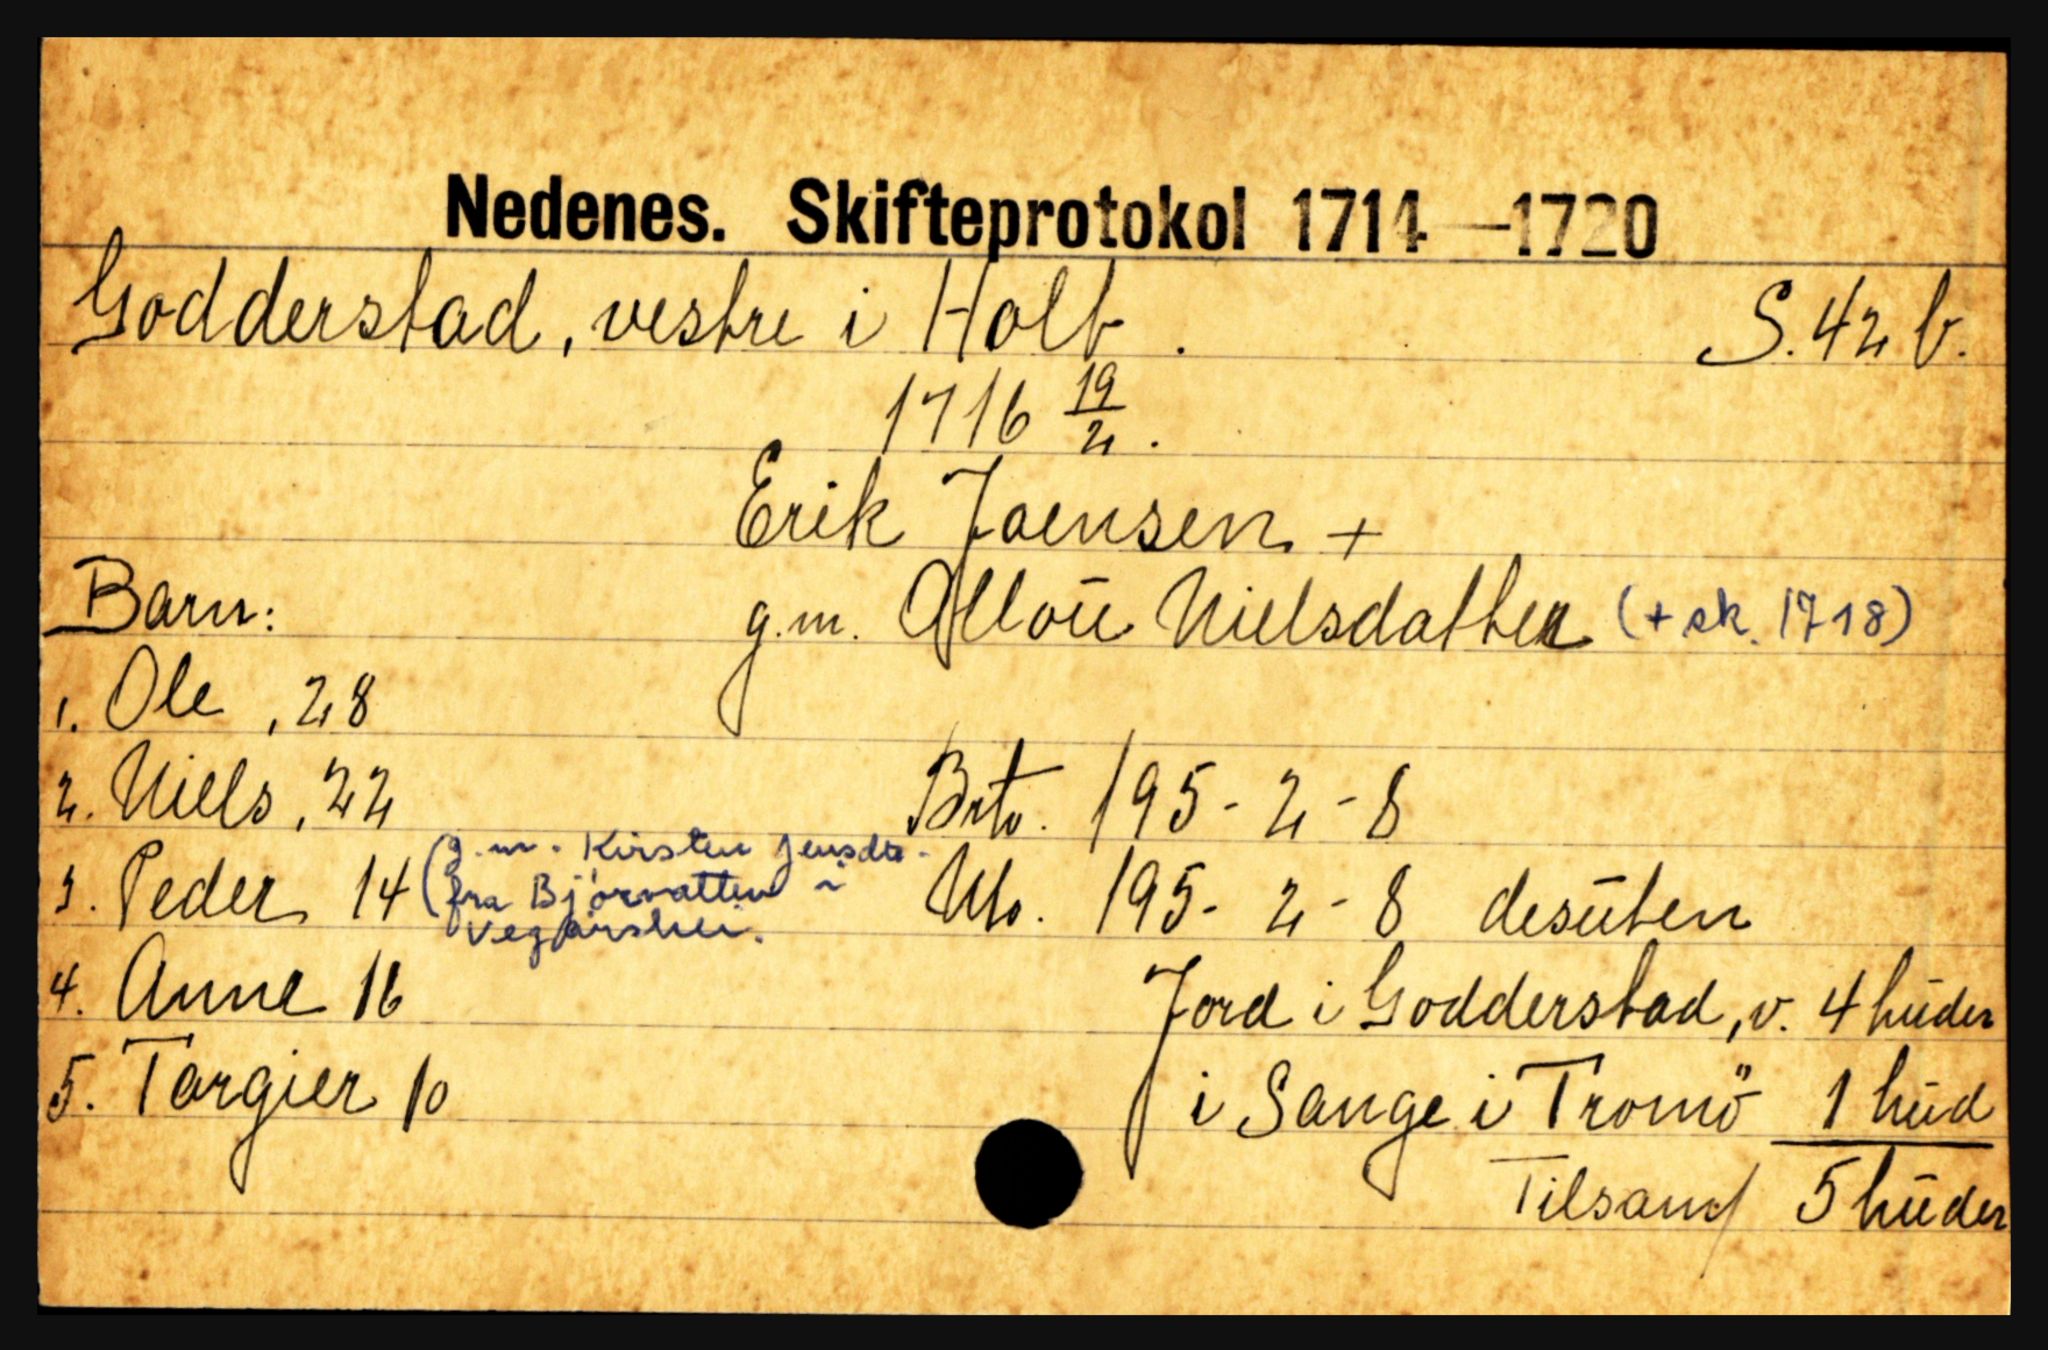 Nedenes. Skifteprotokol 1714—1720
Godderstad, vestre i Holt. S. 42 b.
1716 19/2.
Erik Joensen +
Barn: g.m. Allou Nielsdatter (+ sk. 1718)
1. Ole, 28
2. Niels, 22 Brto. 195-2-8
3. Peder 14 (g.m. Kirsten Jensdtr. fra Bjorvatten i Vegårshei.
Nto. 195-2-8 desuten
4. Anne 16 Jord i Godderstad, v. 4 huder
5. Targier 10 i Sange i Tromö 1 hud
Tilsam/ 5 huder